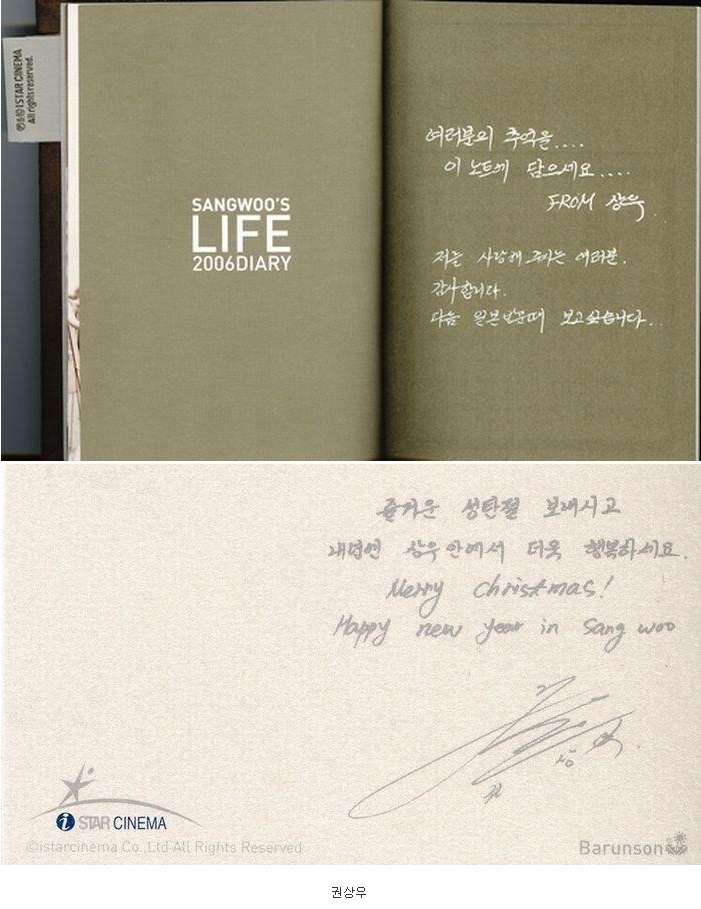 ℗&© ISTAR CINEMA
All rights reserved.
SANGWOO'S
LIFE
2006DIARY
여러분의 추억을....
이 노트에 담으세요....
FROM 상우
저를 사랑해 주시는 여러분.
감사합니다.
다음 일본방문때 보고싶습니다..
즐거운 성탄절 보내시고
내년엔 상우안에서 더욱 행복하세요.
Merry christmas!
Happy new year in Sang woo
i STAR CINEMA
©istarcinema Co.,Ltd All Rights Reserved
Barunson
권상우